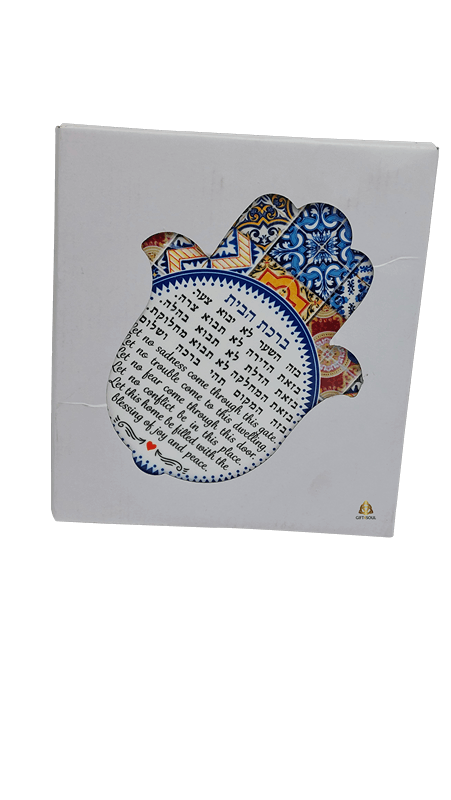 ברכת הבית
בזה השער לא יבוא צער
בזאת הדירה לא תבוא צרה
בזאת הדלת לא תבוא בהלה
בזאת המחלקה לא תבוא מחלוקת
בזה המקום תהי ברכה ושלום
Let no sadness come through this gate.
Let no trouble come to this dwelling.
Let no fear come through this door.
Let no conflict be in this place.
Let this home be filled with the
blessing of joy and peace.
GIFT SOUL